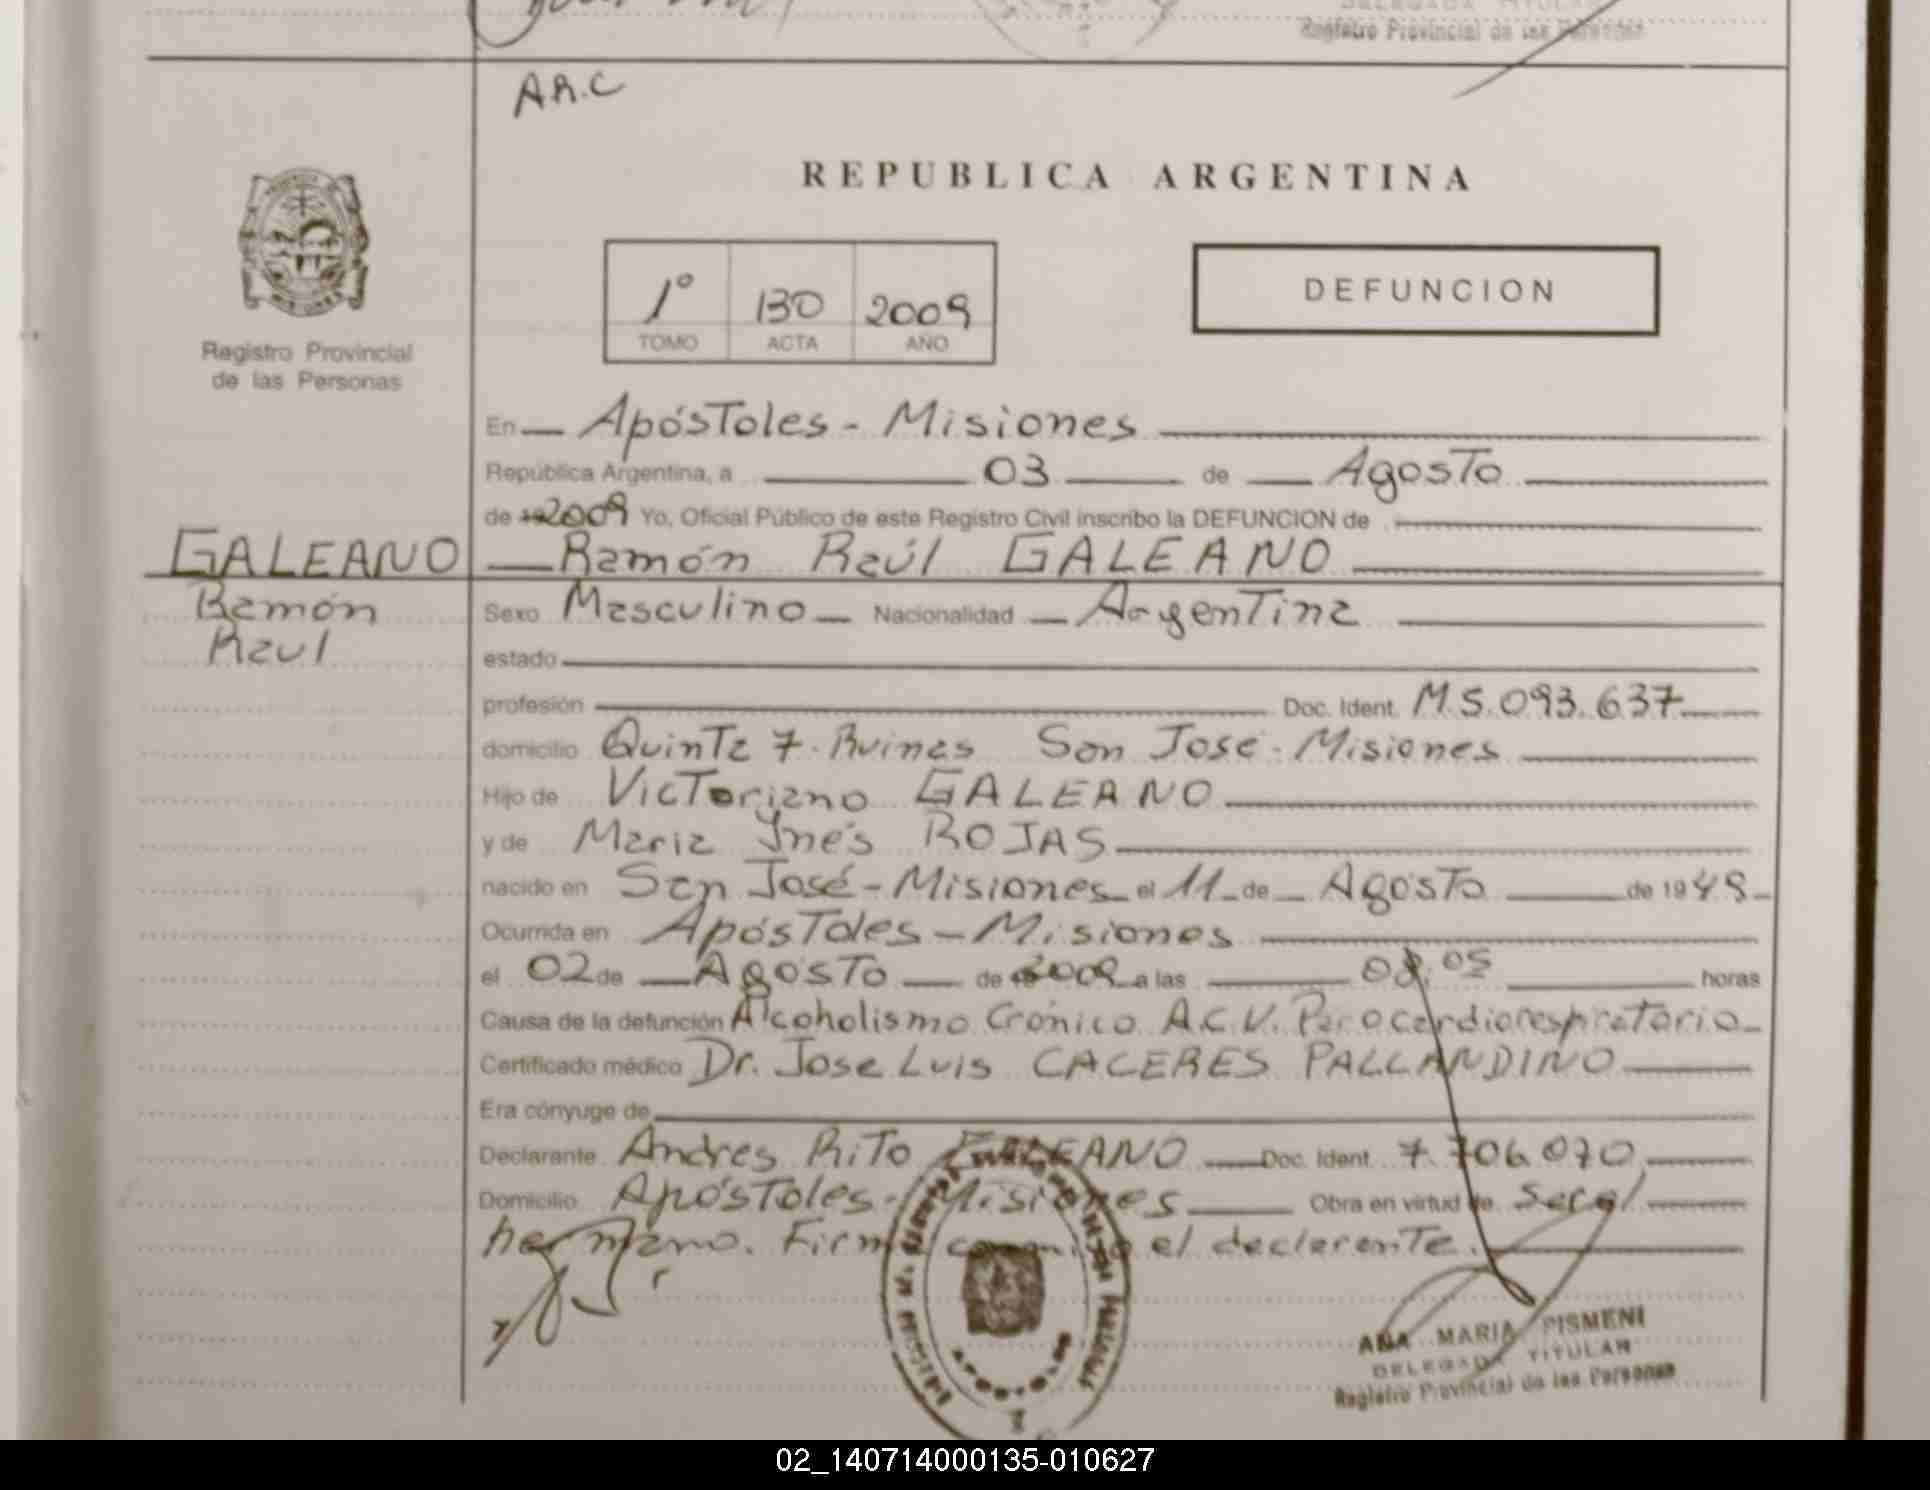 Registro Provincial de las Personas
A.R.C
REPUBLICA ARGENTINA
1º 130 2009
TOMO ACTA AÑO
DEFUNCION
Registro Provincial
de las Personas
En Apóstoles - Misiones
República Argentina, a 03 de Agosto
de 2009 Yo, Oficial Público de este Registro Civil inscribo la DEFUNCION de
GALEANO
Ramón Raúl GALEANO
Ramón
Raul
Sexo Masculino Nacionalidad Argentina
estado
profesión Doc. Ident. M.5.093.637
domicilio Quinta 7. Ruinas San José - Misiones
Hijo de Victoriano GALEANO
y de Maria Ynés ROJAS
nacido en San José - Misiones el 11 de Agosto de 1948
Ocurrida en Apóstoles - Misiones
el 02 de Agosto de 2009 a las 08,05 horas
Causa de la defunción Alcoholismo Crónico A.C.V. Parocardiorespiratorio
Certificado médico Dr. Jose Luis CACERES PALLANDINO
Era cónyuge de
Declarante Andres Rito GALEANO Doc. Ident. 7.706.070
Domicilio Apóstoles - Misiones Obra en virtud de Ser el
hermano. Firma conmigo el declarente.
ANA MARIA PISMENI
DELEGADA TITULAR
Registro Provincial de las Personas
02_140714000135-010627